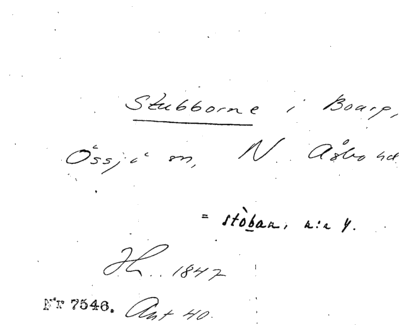 Stubborne i Boarp,
Össjö sn, N. Åsbo hd
= stòban, n:r 4.
Hr. 1847
Nr 7546. Ant 40.